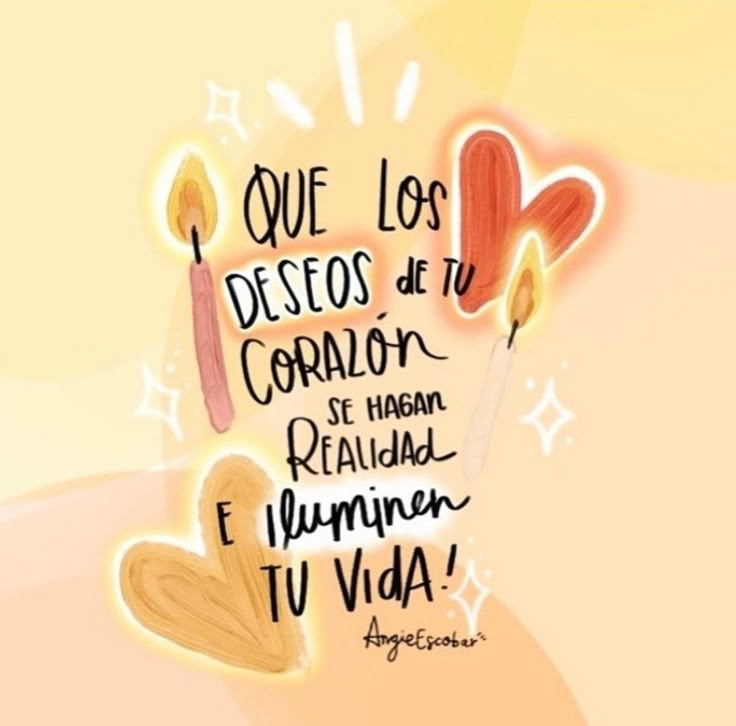 QUE LOS
DESEOS dE TU
CORAZÓn
SE HAGAN
REALIdAd
E Iluminen
TU VIdA!
AngieEscobar